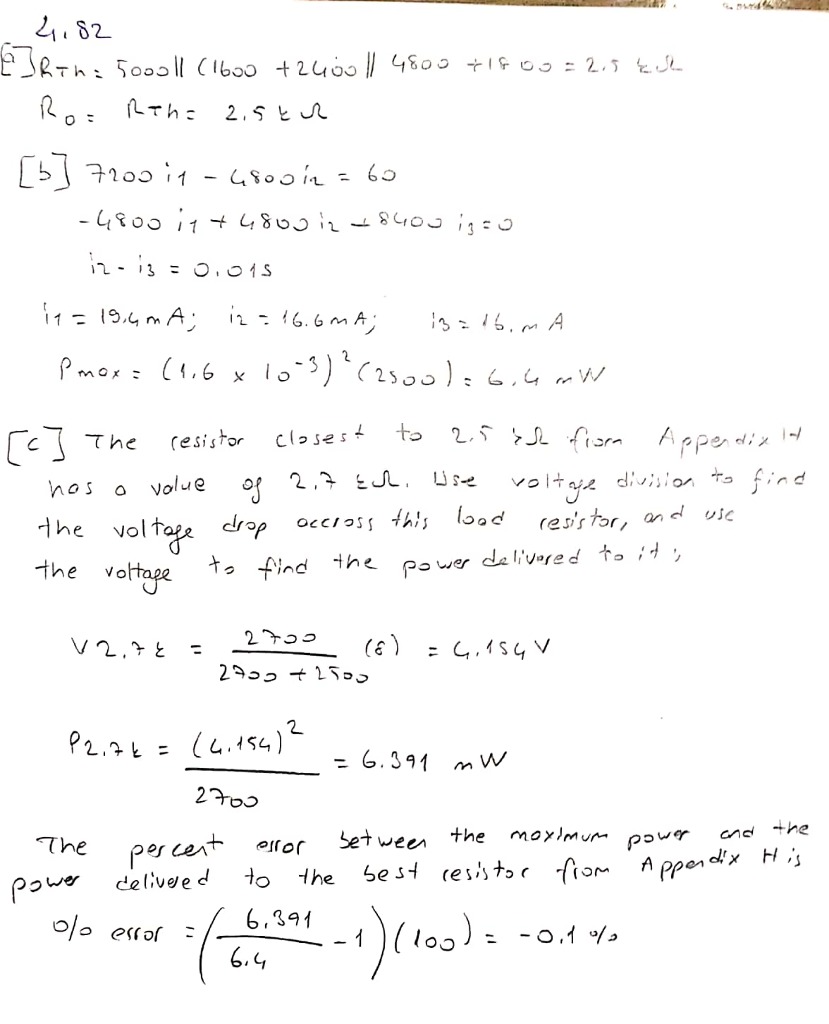 4.82
[a] RTh = 5000 || (1600 + 2400 || 4800 + 1800 = 2.5 kΩ
Ro = RTh = 2.5 kΩ
[b] 7200 i1 - 4800 i2 = 60
-4800 i1 + 4800 i2 + 8400 i3 = 0
i2 - i3 = 0.015
i1 = 19.4 mA; i2 = 16.6 mA; i3 = 16. m A
Pmax = (1.6 x 10-3)2 (2500) = 6.4 mW
[c] The resistor closest to 2.5 kΩ from Appendix H
has a value of 2.7 kΩ. Use voltage division to find
the voltage drop accross this load resistor, and use
the voltage to find the power delivered to it;
V2.7k = 2700 / 2700 + 2500 (8) = 4.154 V
P2.7k = (4.154)2 / 2700 = 6.391 mW
The percent error between the maximum power and the
power delivered to the best resistor from Appendix H is
% error = (6.391 / 6.4 - 1)(100) = -0.1 %